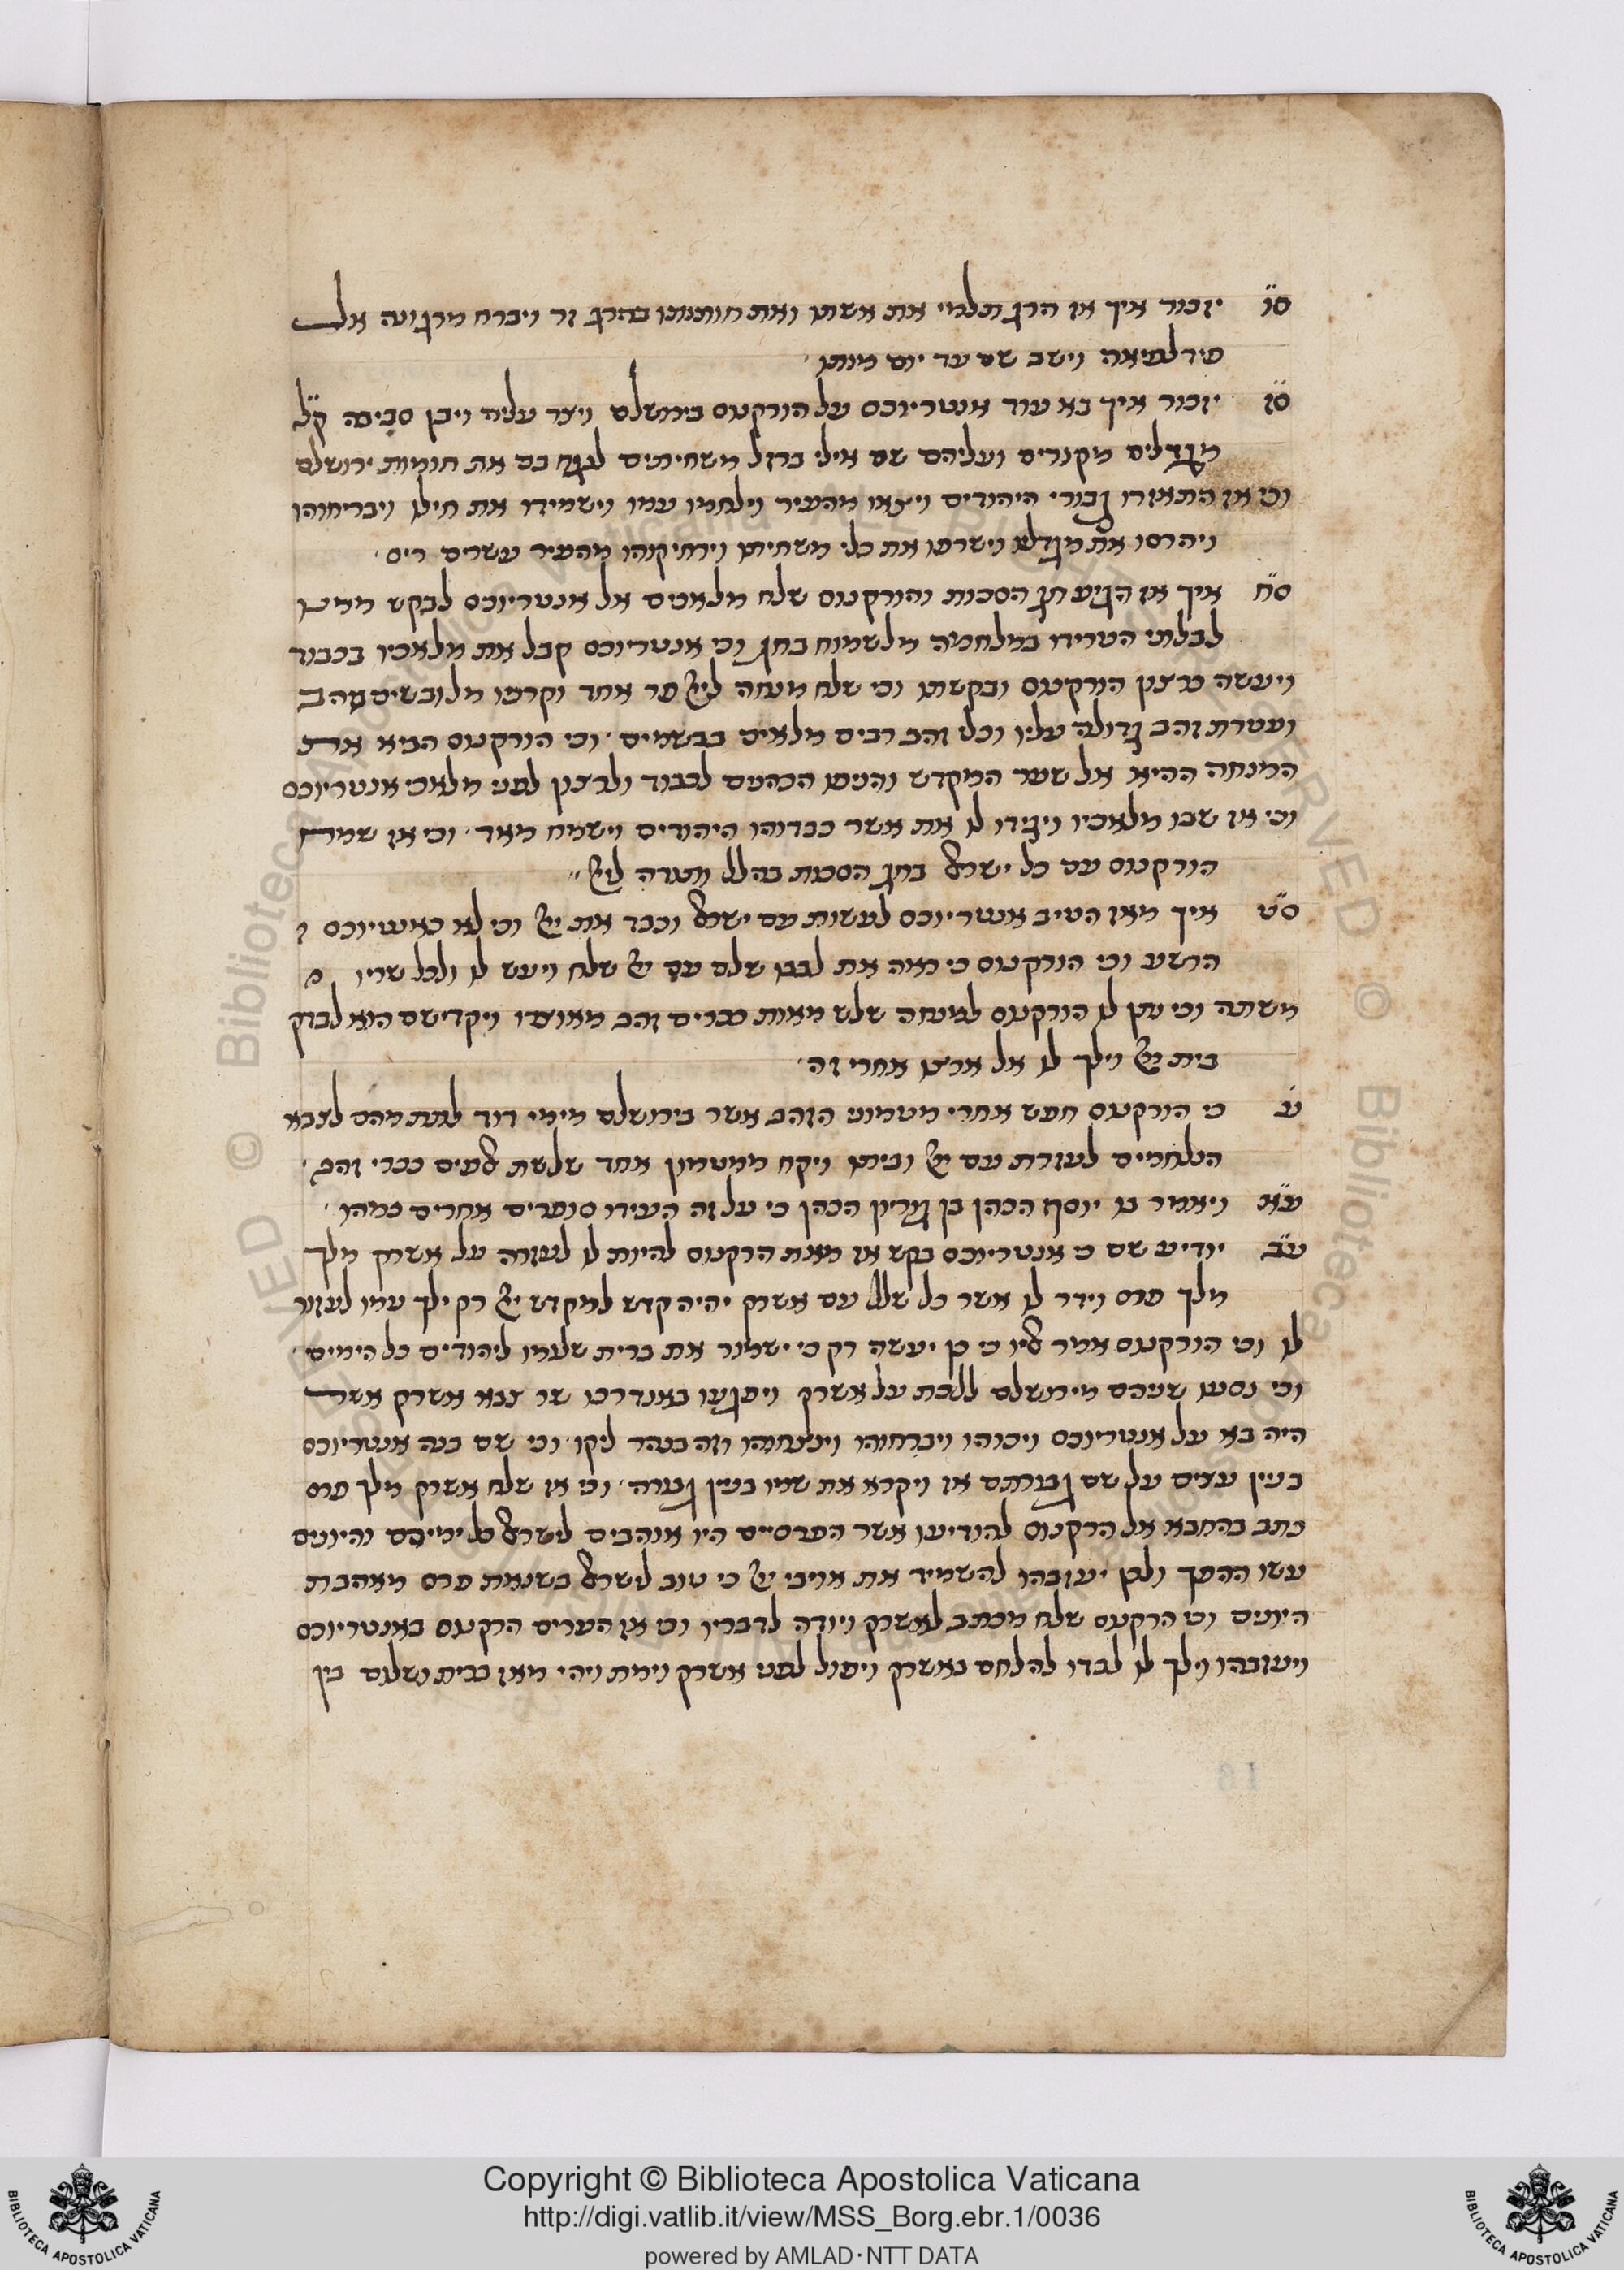 ס״ו יזכור איך אז הרג תלמי את אשתו ואת חותנתו בהרג זר ויברח מרגונה אל
פירלפיאה וישב שם עד יום מותו
ס״ז יזכור איך בא עוד אנטריוכס על הורקנוס בירושלם ויצר עליה ויבן סביבה ק״ל
מגדלים מקורים ועליהם שם אילי ברזל משחיתים לנגח בם את חומות ירושלם
וכי אז התאזרו גבורי היהודים ויצאו מהעיר וילחמו עמו וישמידו את חילו ויבריחוהו
ויהרסו את מגדליו וישרפו את כלי משחיתו וירחיקוהו מהעיר עשרים ריס
ס״ח איך אז הגיע חג הסכות והורקנוס שלח מלאכים אל אנטריוכס לבקש ממנו
לבלתי הטרידו במלחמה מלשמוח בחג וכי אנטריוכס קבל את מלאכיו בכבוד
ויעשה כרצון הורקנוס ובקשתו וכי שלח מנחה ליי פר אחד וקרניו מלובשים זהב
ועטרת זהב גדולה עליו וכלי זהב רבים מלאים בבשמים וכי הורקנוס הביא את
המנחה ההיא אל שער המקדש והניפו הכהנים לכבוד ולרצון לפני מלאכי אנטריוכס
וכי אז שבו מלאכיו ויגידו לו את אשר כבדוהו היהודים וישמח מאד וכי אז שמח
הורקנוס עם כל ישראל בחג הסכות בהלל ותודה ליי
ס״ט איך מאז הטיב אנטריוכס לעשות עם ישראל וכבד את יי וכי לא כאנטיוכס
הרשע וכי הורקנוס כי ראה את לבבו שלם עם יי שלח ויעש לו ולכל שריו
משתה וכי נתן לו הורקנוס למנחה שלש מאות ככרים זהב מאוצרו ויקדישם הוא לבדק
בית יי וילך לו אל ארצו אחרי זה
ע׳ כי הורקנוס חפש אחרי מטמוני הזהב אשר בירושלם מימי דוד לתת מהם לצבא
הנלחמים לעזרת עם יי וביתו ויקח ממטמון אחד שלשת אלפים ככרי זהב
ע״א ויאמר בו יוסף הכהן בן גוריון הכהן כי על זה העידו סופרים אחרים כמהו
ע״ב יודיע שם כי אנטריוכס בקש אז מאת הרקנוס להיות לו לעזרה על אשרק מלך
מלך פרס וידר לו אשר כל שלל עם אשרק יהיה קדש למקדש יי רק ילך עמו לעזור
לו וכי הורקנוס אמר אליו כי כן יעשה רק כי ישמור את ברית שלומו ליהודים כל הימים
וכי נסעו שניהם מירושלם ללכת על אשרק ויפגעו באנדרכו שר צבא אשרק אשר
היה בא על אנטריוכס ויכוהו ויבריחוהו וינצחוהו וזה בנהר ליקו וכי שם בנה אנטריוכס
בנין עצים על שם גבורתם אז ויקרא את שמו בנין גבורה וכי אז שלח אשרק מלך פרס
כתב בהחבא אל הרקנוס להודיעו אשר הפרסיים היו אוהבים לישראל כל ימיהם והיונים
עשו ההפך ולכן יעזבהו להשמיד את אויבי יי כי טוב לישראל בשנאת פרס מאהבת
היונים וכי הרקנוס שלח מכתב לאשרק ויודה לדבריו וכי אז הערים הרקנוס באנטריוכס
ויעזבהו וילך לו לבדו להלחם באשרק ויפול לפני אשרק וימת ויהי מאז ברית ושלום בין
Copyright © Biblioteca Apostolica Vaticana
http://digi.vatlib.it/view/MSS_Borg.ebr.1/0036
powered by AMLAD·NTT DATA